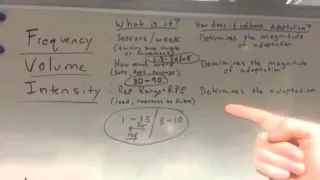 What is it?
How does it influence Adaptation?
Frequency
Sessions/week
(training same muscle
or movement)
Determines the magnitude
of adaptation
Volume
How much work
(Sets, Reps, Range)
Determines the magnitude
of adaptation
80-90
Intensity
Rep Range + RPE
(load, nearness to failure)
Determines the adaptation
1-15 / 8-10